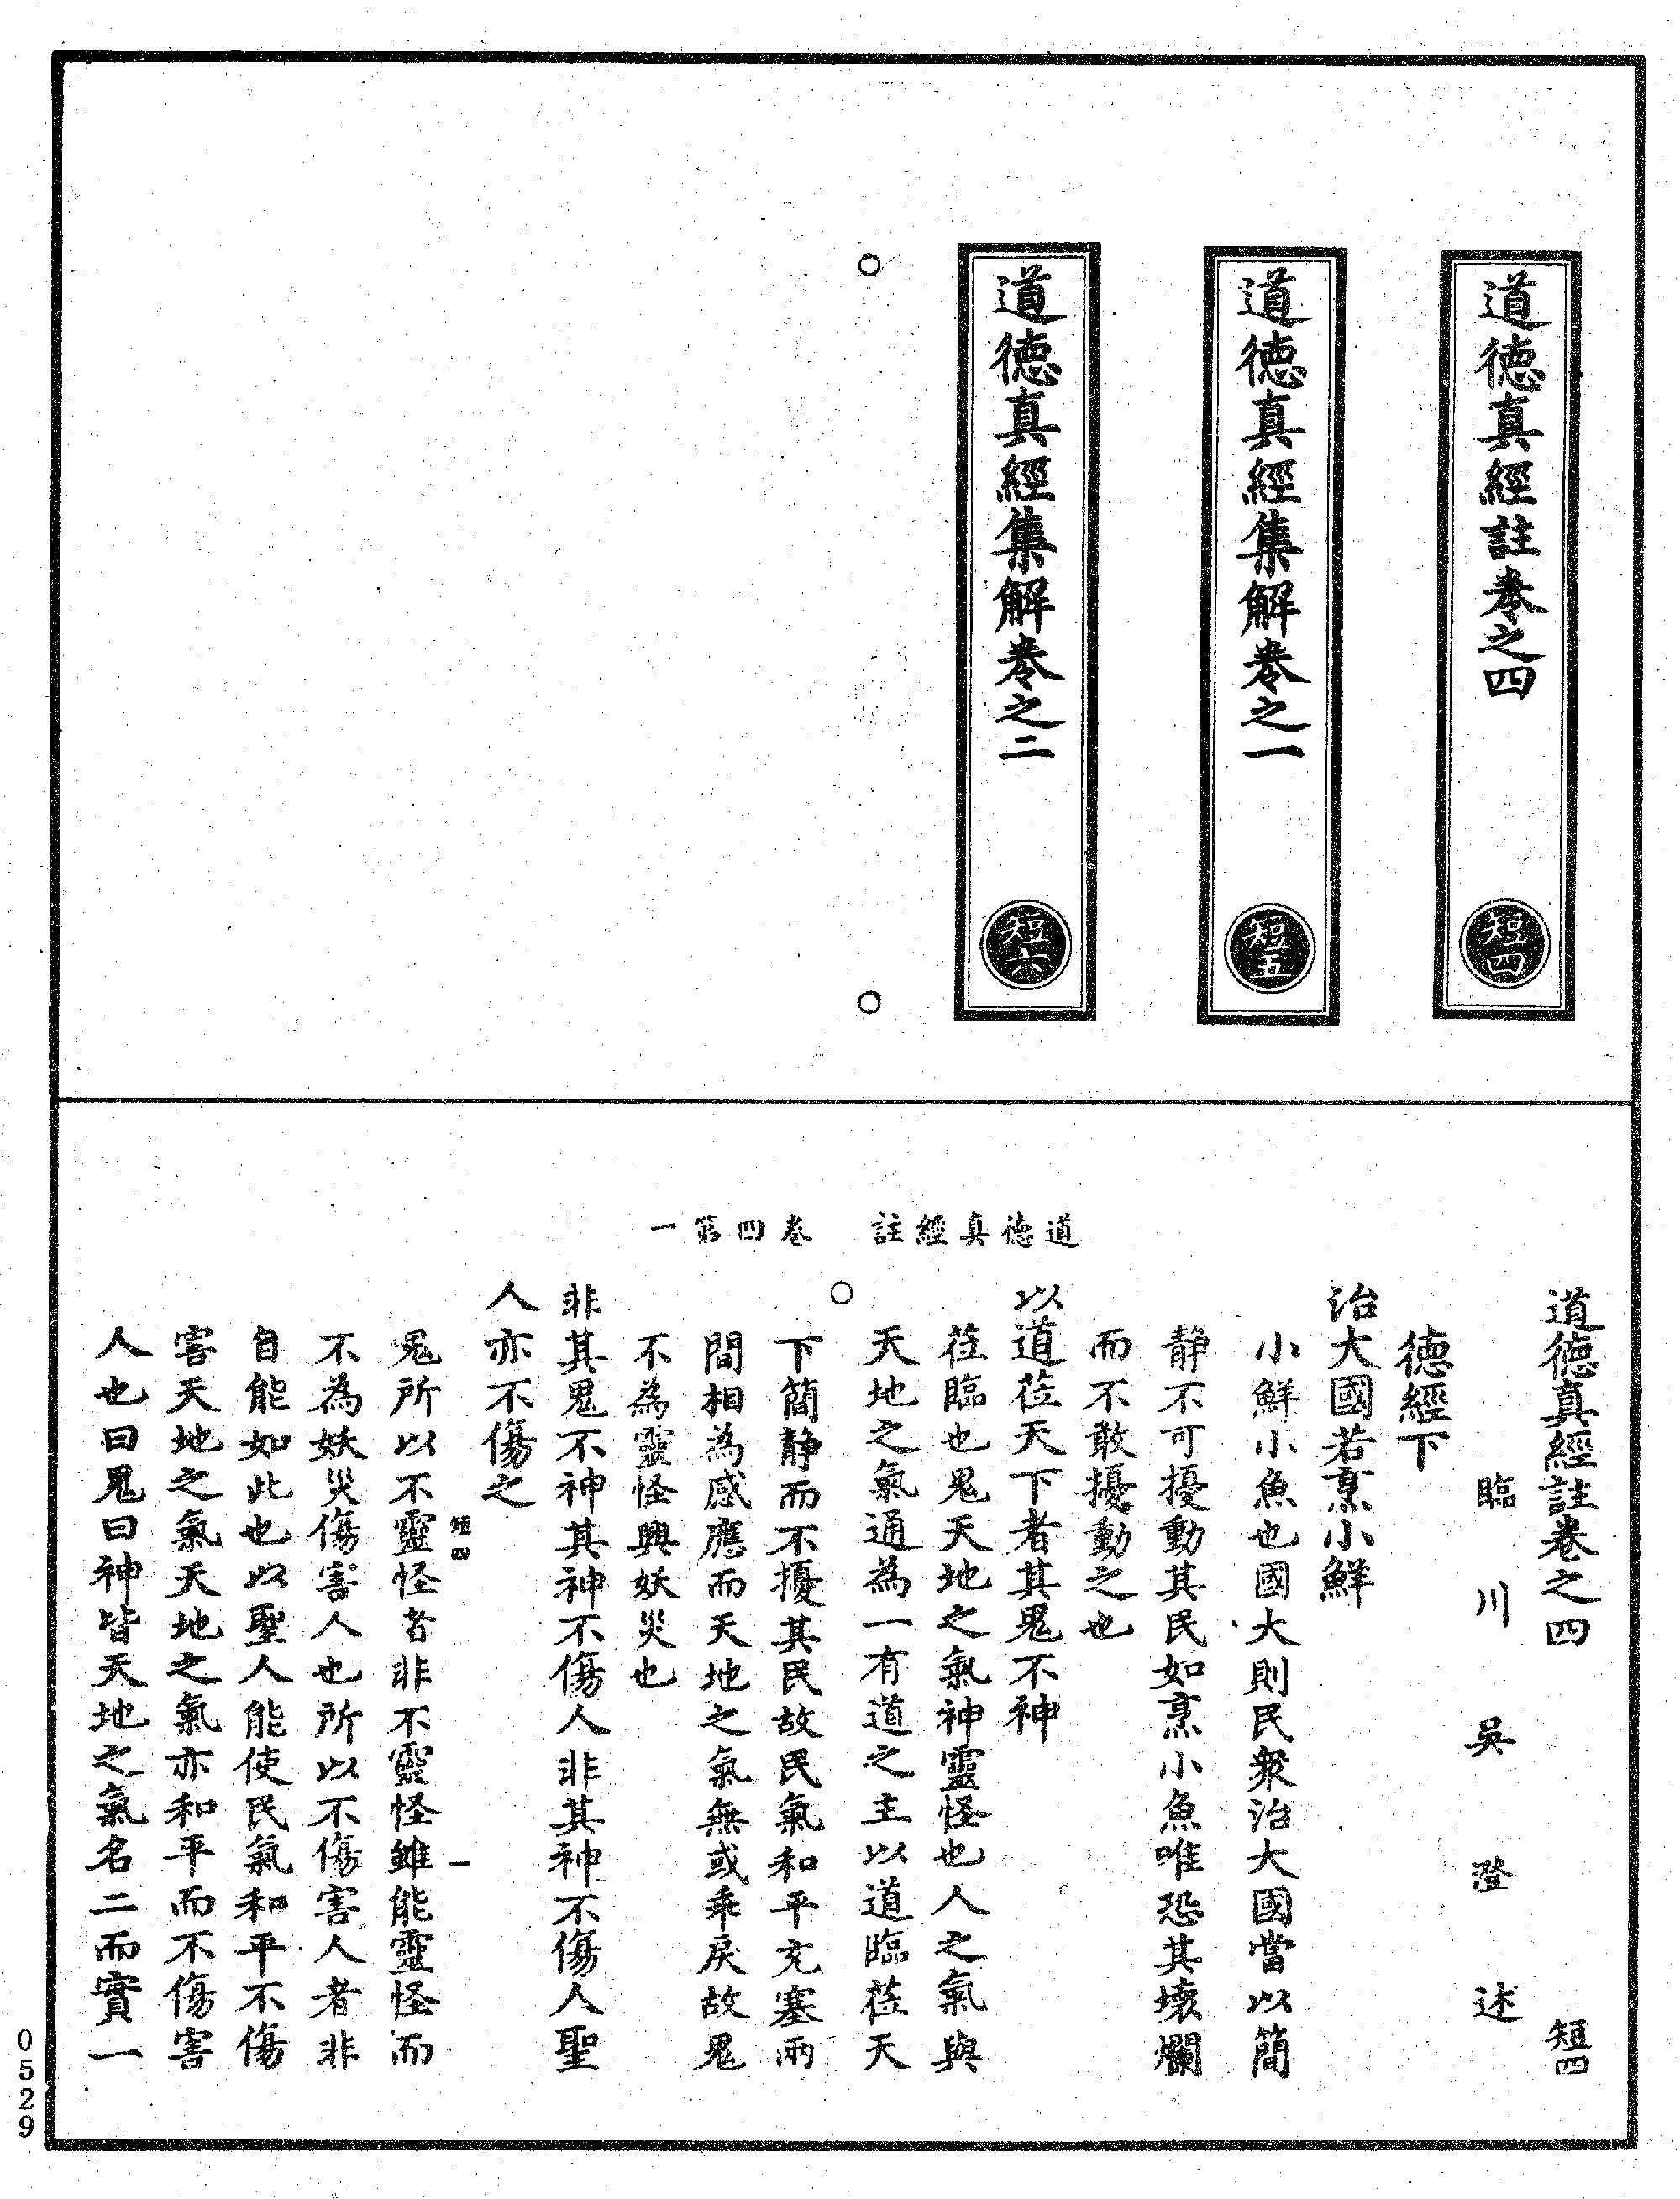 道德真經註卷之四
短四
道德真經集解卷之一
短五
道德真經集解卷之二
短六
道德真經註　卷四第一
道德真經註卷之四　短四
臨川吳澄述
德經下
治大國若烹小鮮
小鮮小魚也國大則民衆治大國當以簡
靜不可擾動其民如烹小魚唯恐其壞爛
而不敢擾動之也
以道莅天下者其鬼不神
莅臨也鬼天地之氣神靈怪也人之氣與
天地之氣通為一有道之主以道臨莅天
下簡靜而不擾其民故民氣和平充塞兩
間相為感應而天地之氣無或乖戾故鬼
不為靈怪興妖災也
非其鬼不神其神不傷人非其神不傷人聖
人亦不傷之
短四　一
鬼所以不靈怪者非不靈怪雖能靈怪而
不為妖災傷害人也所以不傷害人者非
自能如此也以聖人能使民氣和平不傷
害天地之氣天地之氣亦和平而不傷害
人也曰鬼曰神皆天地之氣名二而實一
0529